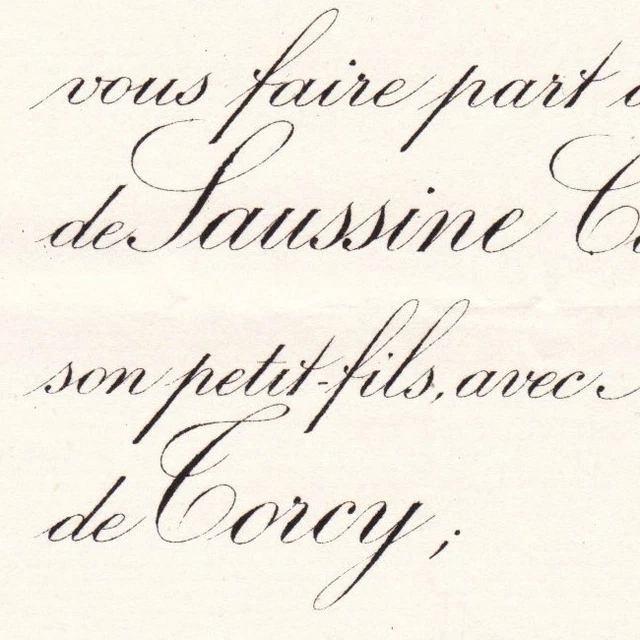 vous faire part
de Saussine
son petit-fils, avec
de Torcy;